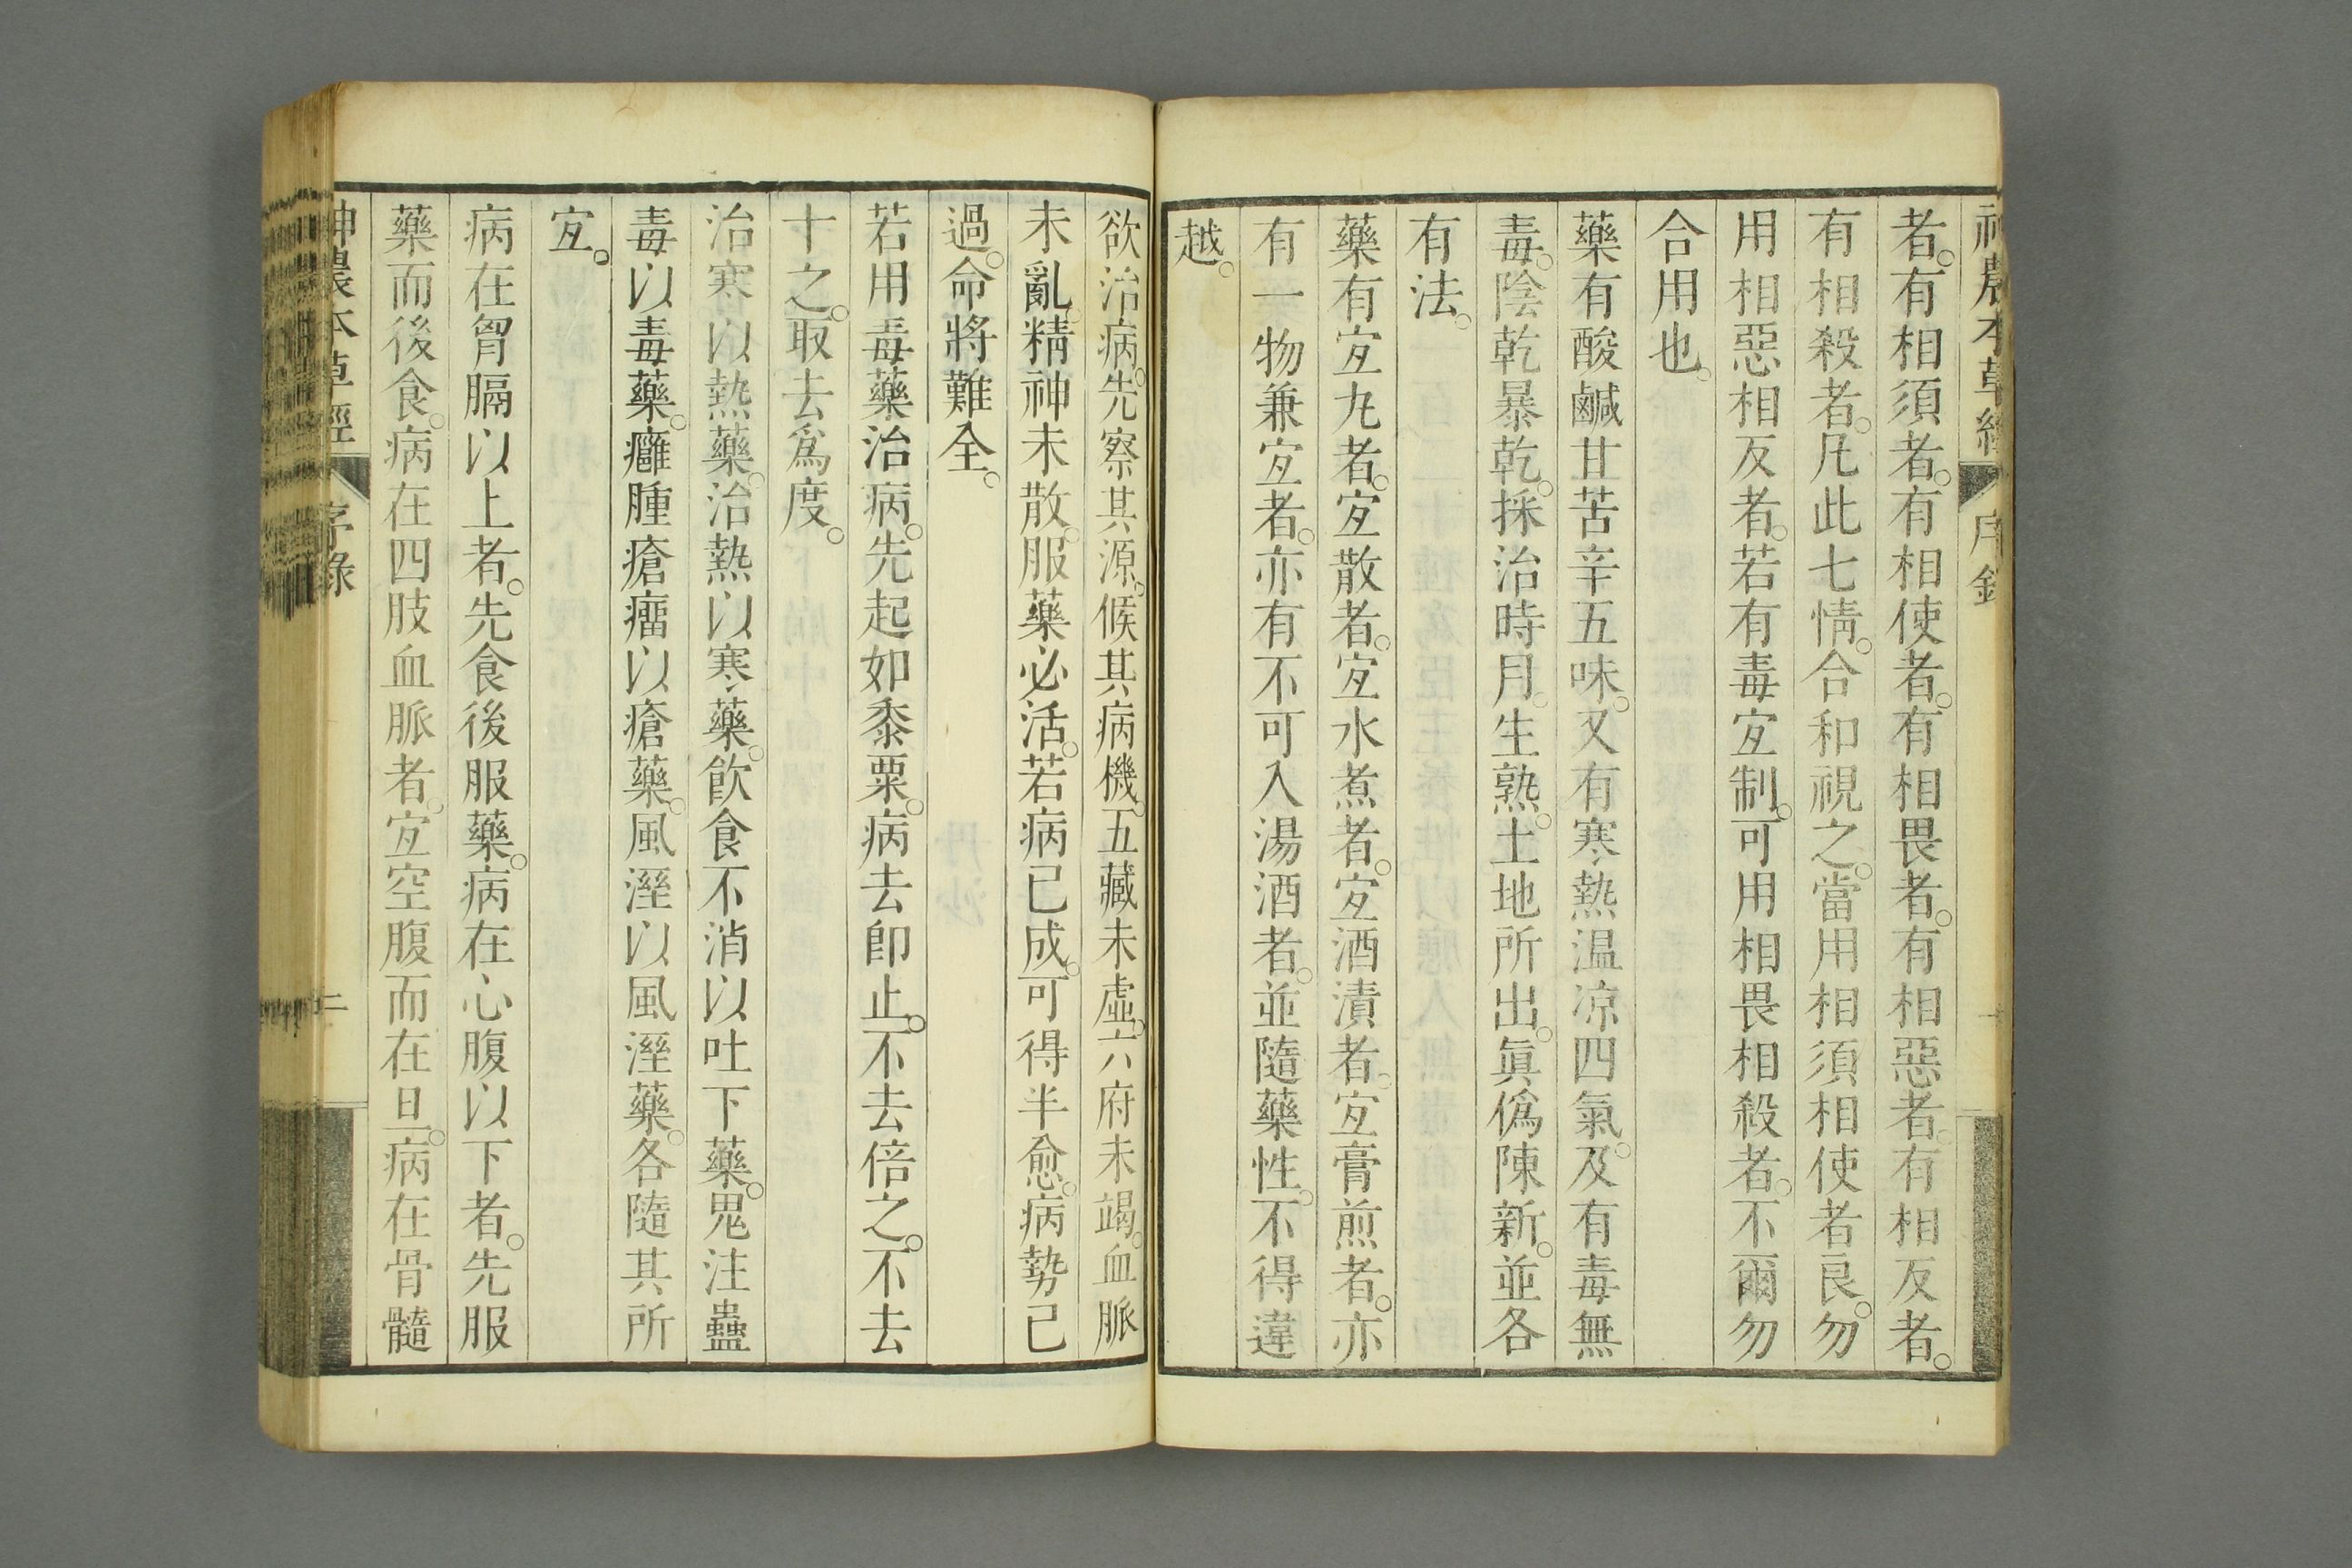 神農本草經 序錄
者。有相須者。有相使者。有相畏者。有相惡者。有相反者。
有相殺者。凡此七情。合和視之。當用相須相使者良。勿
用相惡相反者。若有毒宐制。可用相畏相殺者。不爾勿
合用也。
藥有酸鹹甘苦辛五味。又有寒熱温凉四氣。及有毒無
毒。陰乾暴乾。採治時月。生熟。土地所出。眞僞陳新。並各
有法。
藥有宐丸者。宐散者。宐水煮者。宐酒漬者。宐膏煎者。亦
有一物兼宐者。亦有不可入湯酒者。並隨藥性。不得違
越。
欲治病。先察其源。候其病機。五藏未虛。六府未竭。血脈
未亂。精神未散。服藥必活。若病已成。可得半愈。病勢已
過。命將難全。
若用毒藥治病。先起如黍粟。病去卽止。不去倍之。不去
十之。取去爲度。
治寒以熱藥。治熱以寒藥。飮食不消以吐下藥。鬼注蠱
毒以毒藥。癰腫瘡瘤以瘡藥。風溼以風溼藥。各隨其所
宐。
病在胷膈以上者。先食後服藥。病在心腹以下者。先服
藥而後食。病在四肢血脈者。宐空腹而在旦。病在骨髓
神農本草經 序錄 二